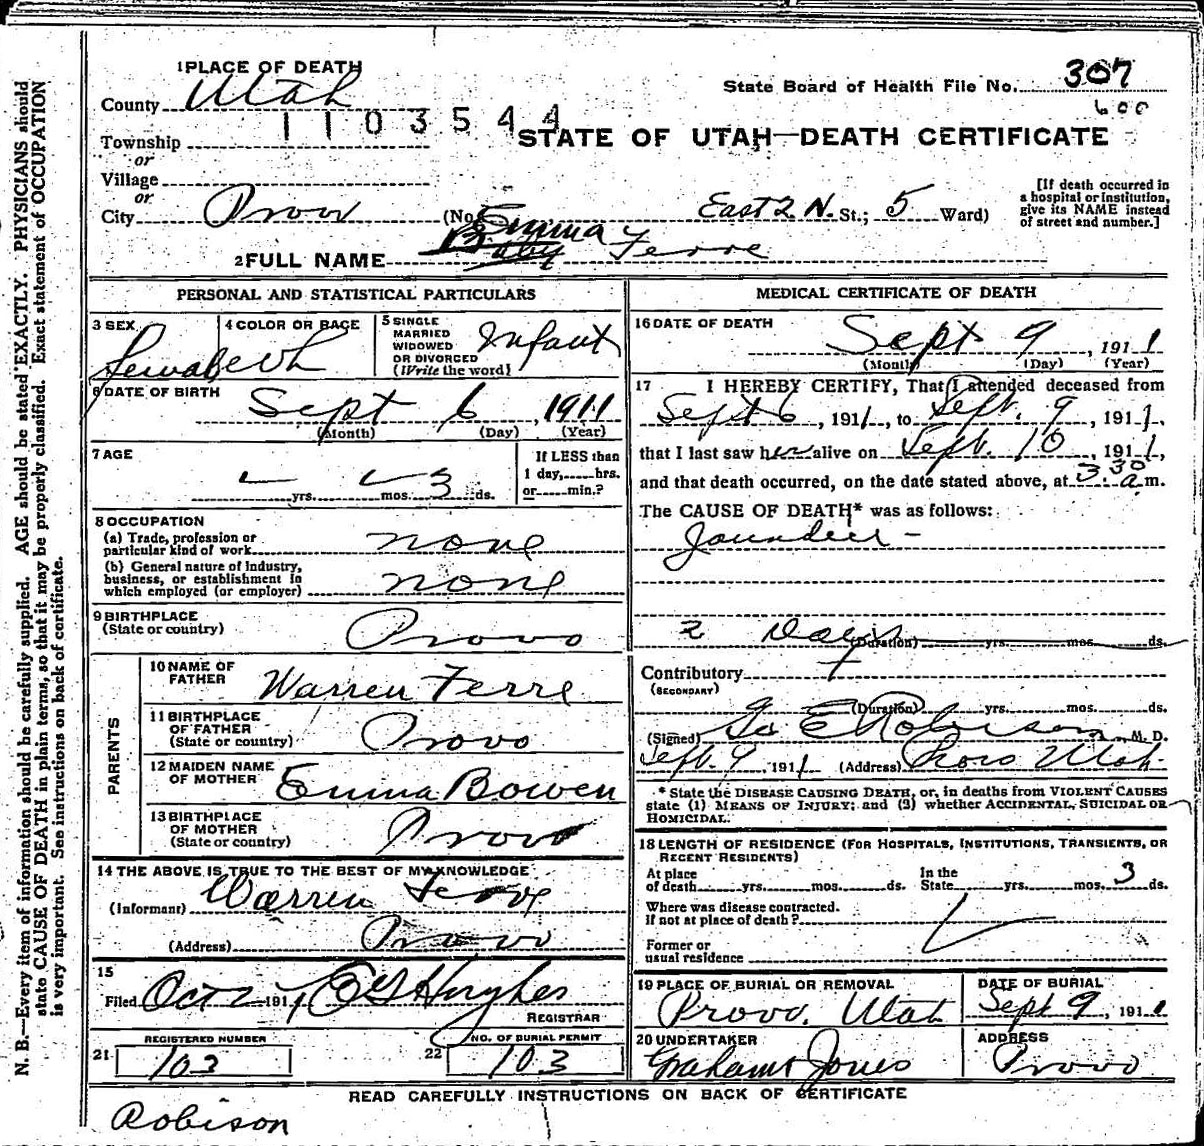 1 PLACE OF DEATH
County Utah
State Board of Health File No. 307
600
1103544
STATE OF UTAH—DEATH CERTIFICATE
Township
or
Village
or
City Provo (No. East 2 N. St.; 5 Ward)
[If death occurred in
a hospital or institution,
give its NAME instead
of street and number.]
Emma
2 FULL NAME Baby Ferre
PERSONAL AND STATISTICAL PARTICULARS
3 SEX
4 COLOR OR RACE
5 SINGLE
MARRIED
WIDOWED
OR DIVORCED
(Write the word)
Infant
6 DATE OF BIRTH
Sept 6, 1911
(Month) (Day) (Year)
7 AGE
yrs. mos. 3 ds.
If LESS than
1 day, hrs.
or min.?
8 OCCUPATION
(a) Trade, profession or
particular kind of work none
(b) General nature of industry,
business, or establishment in
which employed (or employer) none
9 BIRTHPLACE
(State or country) Provo
PARENTS
10 NAME OF
FATHER Warren Ferre
11 BIRTHPLACE
OF FATHER
(State or country) Provo
12 MAIDEN NAME
OF MOTHER Emma Bowen
13 BIRTHPLACE
OF MOTHER
(State or country) Provo
14 THE ABOVE IS TRUE TO THE BEST OF MY KNOWLEDGE
(Informant) Warren Ferre
(Address) Provo
15
Filed Oct 2 1911 Hughes
REGISTRAR
REGISTERED NUMBER
21 103
NO. OF BURIAL PERMIT
22 103
MEDICAL CERTIFICATE OF DEATH
16 DATE OF DEATH
Sept 9, 1911
(Month) (Day) (Year)
17 I HEREBY CERTIFY, That I attended deceased from
Sept 6, 1911, to Sept. 9, 1911,
that I last saw her alive on Sept. 10, 1911,
and that death occurred, on the date stated above, at 3.30 a.m.
The CAUSE OF DEATH* was as follows:
2 Days (Duration) yrs. mos. ds.
Contributory
(SECONDARY)
(Duration) yrs. mos. ds.
(Signed) E Robison, M. D.
Sept. 9, 1911 (Address) Provo Utah
* State the DISEASE CAUSING DEATH, or, in deaths from VIOLENT CAUSES
state (1) MEANS OF INJURY; and (2) whether ACCIDENTAL, SUICIDAL OR
HOMICIDAL.
18 LENGTH OF RESIDENCE (FOR HOSPITALS, INSTITUTIONS, TRANSIENTS, OR
RECENT RESIDENTS)
At place
of death yrs. mos. ds.
In the
State yrs. mos. 3 ds.
Where was disease contracted.
If not at place of death?
Former or
usual residence
19 PLACE OF BURIAL OR REMOVAL
Provo, Utah
DATE OF BURIAL
Sept 9, 1911
20 UNDERTAKER
Graham Jones
ADDRESS
Provo
READ CAREFULLY INSTRUCTIONS ON BACK OF CERTIFICATE
Robison
N. B.—Every item of information should be carefully supplied. AGE should be stated EXACTLY. PHYSICIANS should
state CAUSE OF DEATH in plain terms, so that it may be properly classified. Exact statement of OCCUPATION
is very important. See instructions on back of certificate.